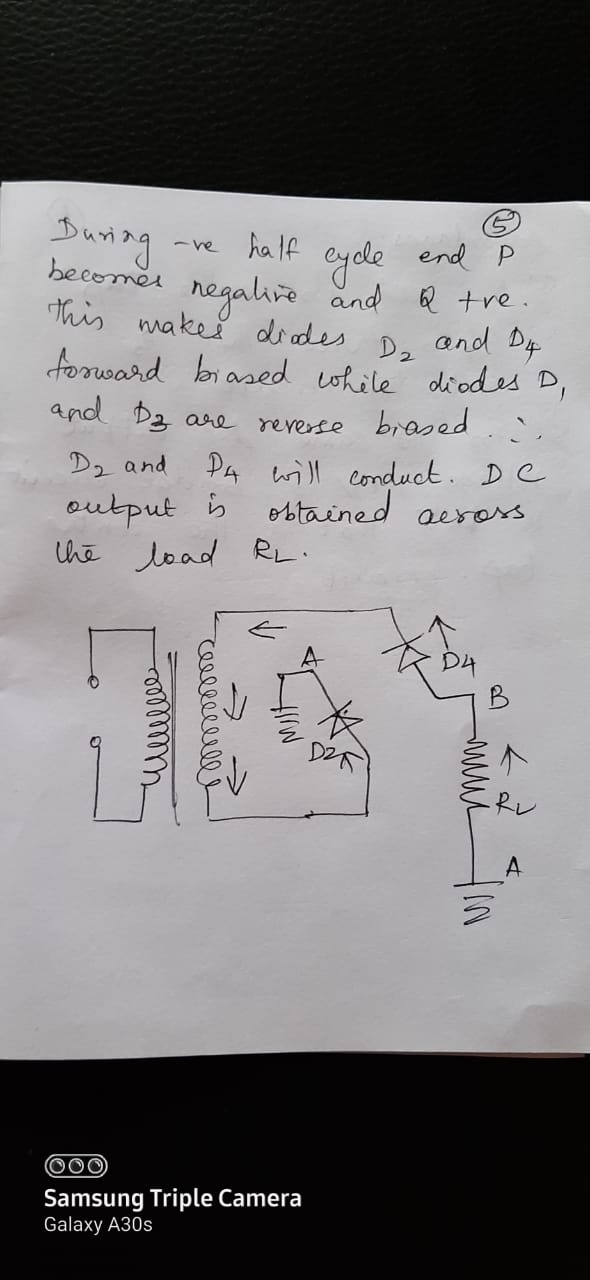 5
During -ve half cycle end P
becomes negative and Q +ve.
this makes diodes D2 and D4
forward biased while diodes D1
and D3 are reverse biased. ∴
D2 and D4 will conduct. DC
output is obtained across
the load RL.
A
D4
B
D2
RL
A
Samsung Triple Camera
Galaxy A30s